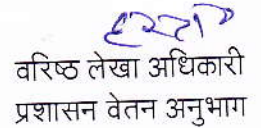 वरिष्ठ लेखा अधिकारी
प्रशासन वेतन अनुभाग